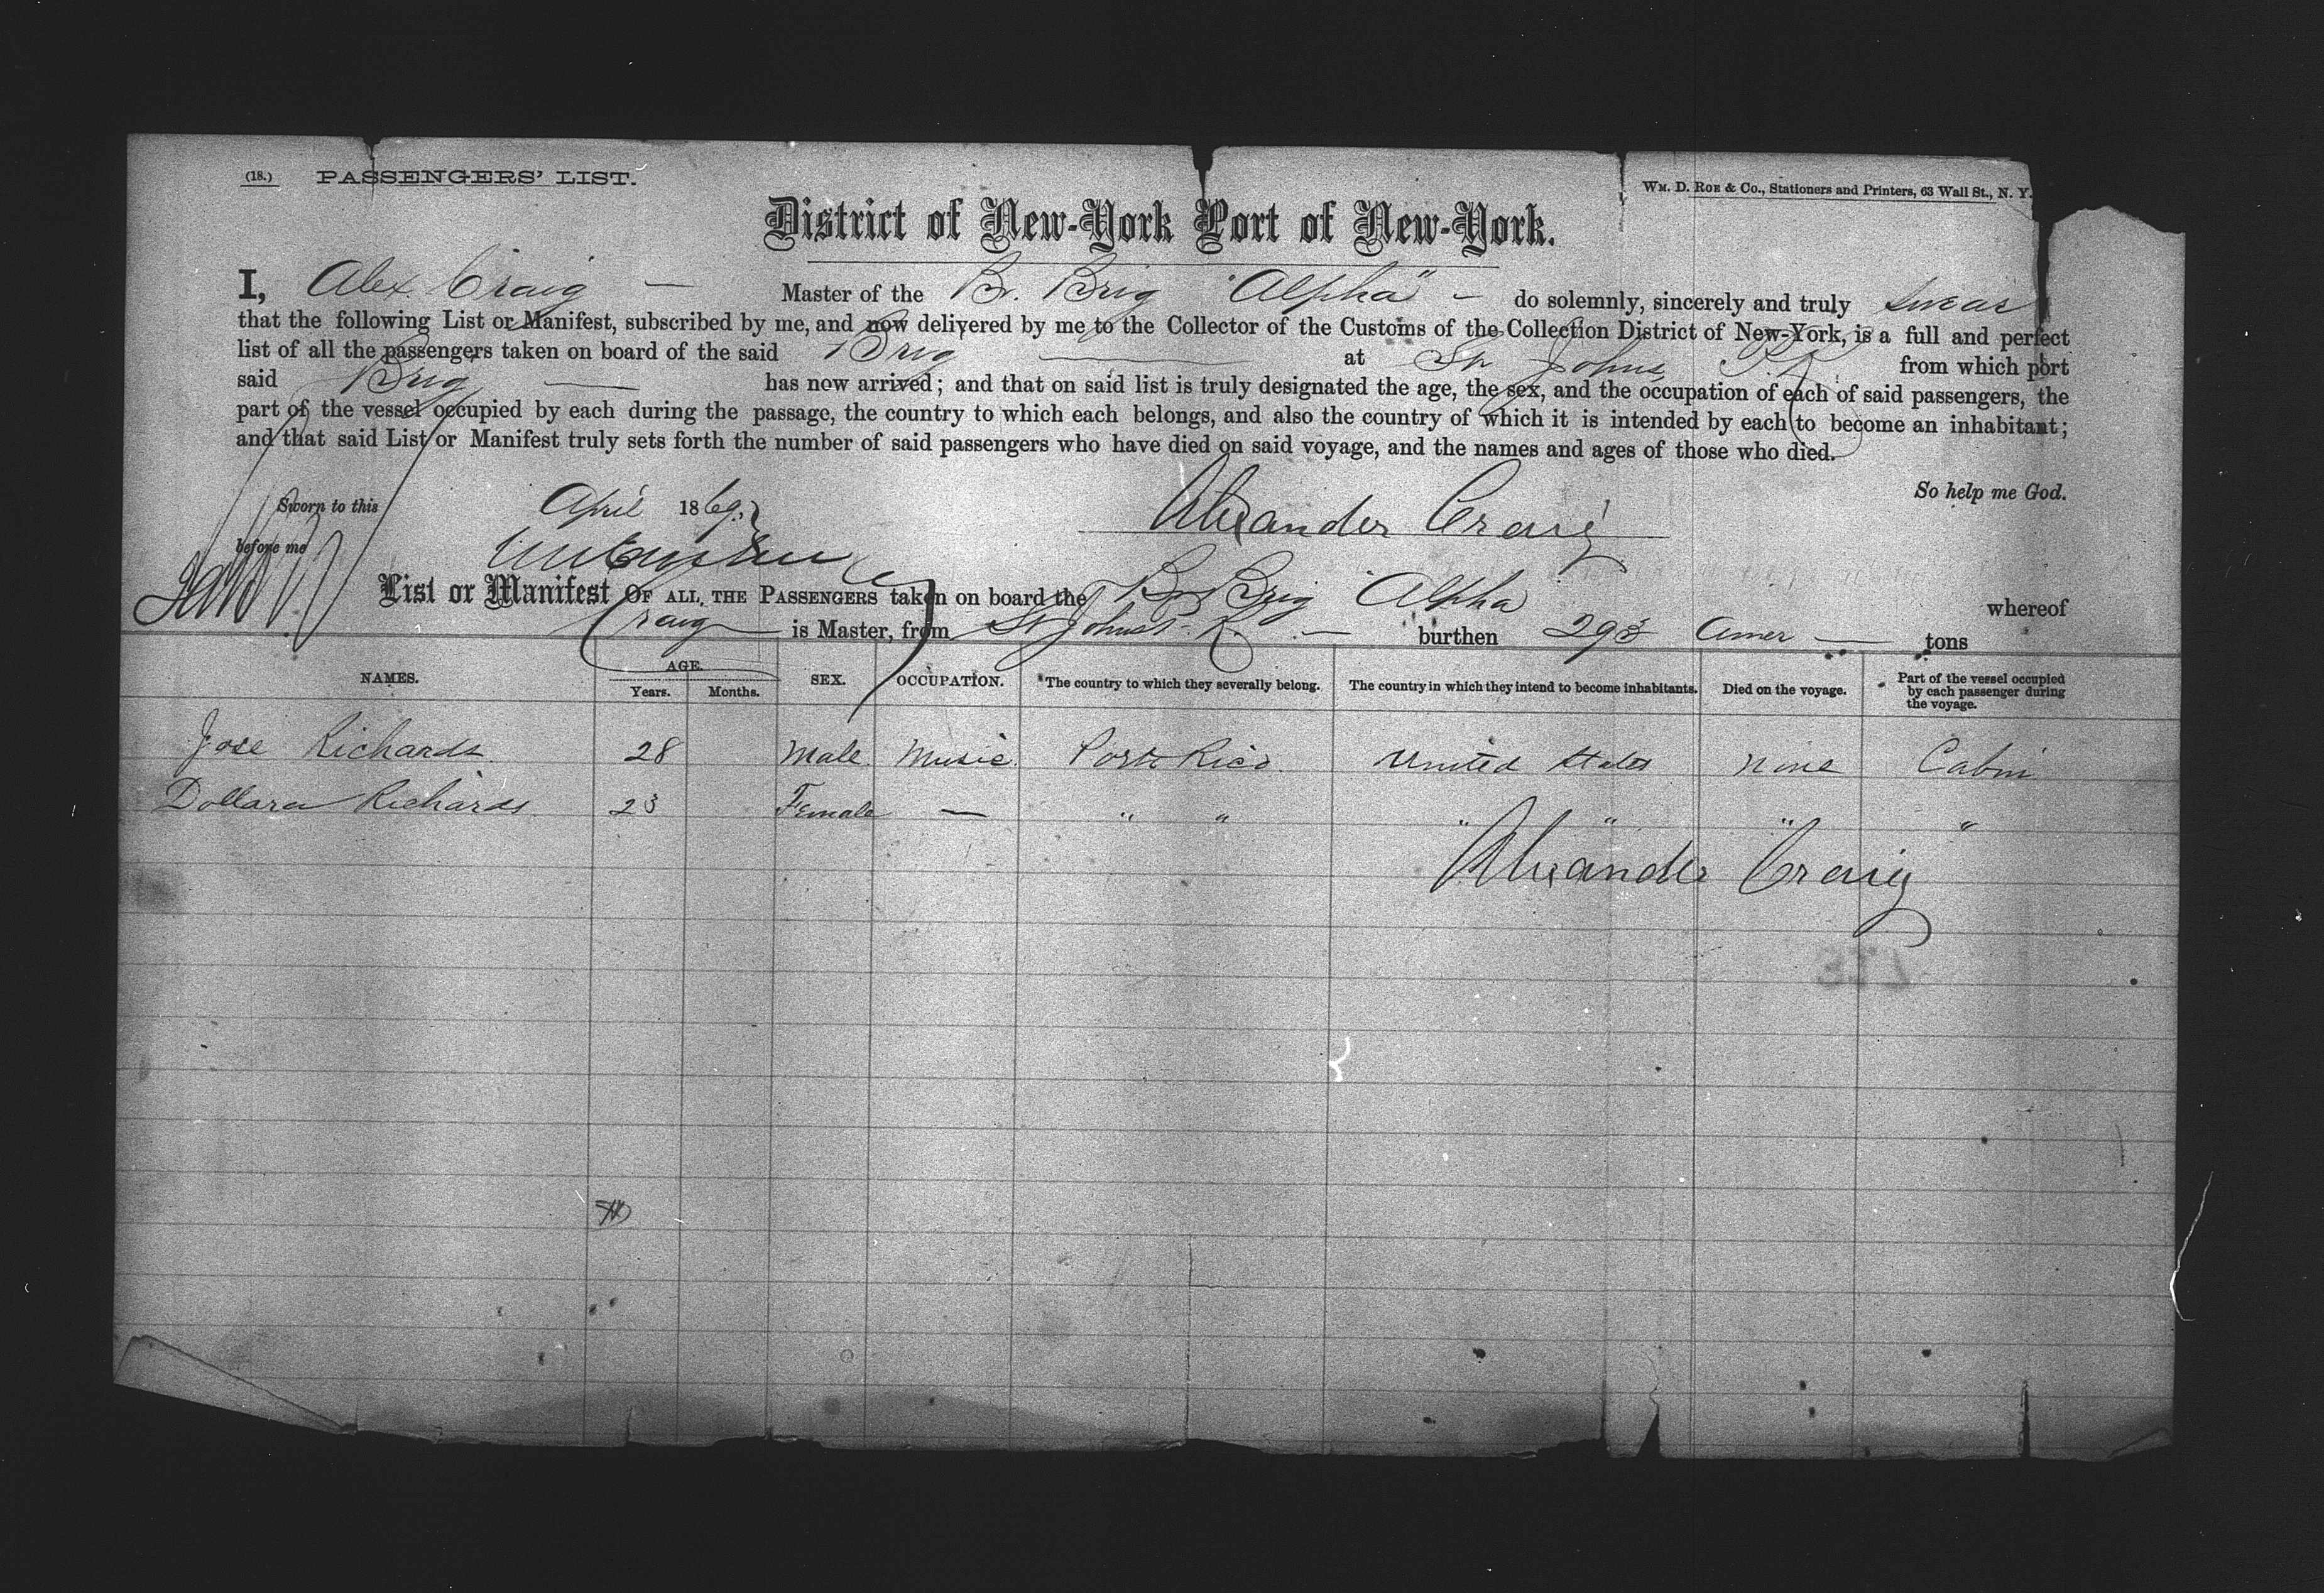 (18.) PASSENGERS' LIST.
WM. D. ROE & Co., Stationers and Printers, 63 Wall St., N. Y.
District of New-York Port of New-York.
I, Alex. Craig — Master of the Br. Brig "Alpha" — do solemnly, sincerely and truly swear
that the following List or Manifest, subscribed by me, and now delivered by me to the Collector of the Customs of the Collection District of New-York, is a full and perfect
list of all the passengers taken on board of the said Brig — at St Johns P. R. from which port
said Brig — has now arrived; and that on said list is truly designated the age, the sex, and the occupation of each of said passengers, the
part of the vessel occupied by each during the passage, the country to which each belongs, and also the country of which it is intended by each to become an inhabitant;
and that said List or Manifest truly sets forth the number of said passengers who have died on said voyage, and the names and ages of those who died.
So help me God.
Sworn to this April 1869,
Alexander Craig
before me
List or Manifest OF ALL THE PASSENGERS taken on board the Br Brig Alpha whereof
Craig — is Master, from St Johns P. R. — burthen 293 Amer — tons
NAMES. AGE. Years. Months. SEX. OCCUPATION. The country to which they severally belong. The country in which they intend to become inhabitants. Died on the voyage. Part of the vessel occupied by each passenger during the voyage.
Jose Richards 28 Male Music. Porto Rico United States None Cabin
Dollara Richards 23 Female — " " " " " "
Alexander Craig
317